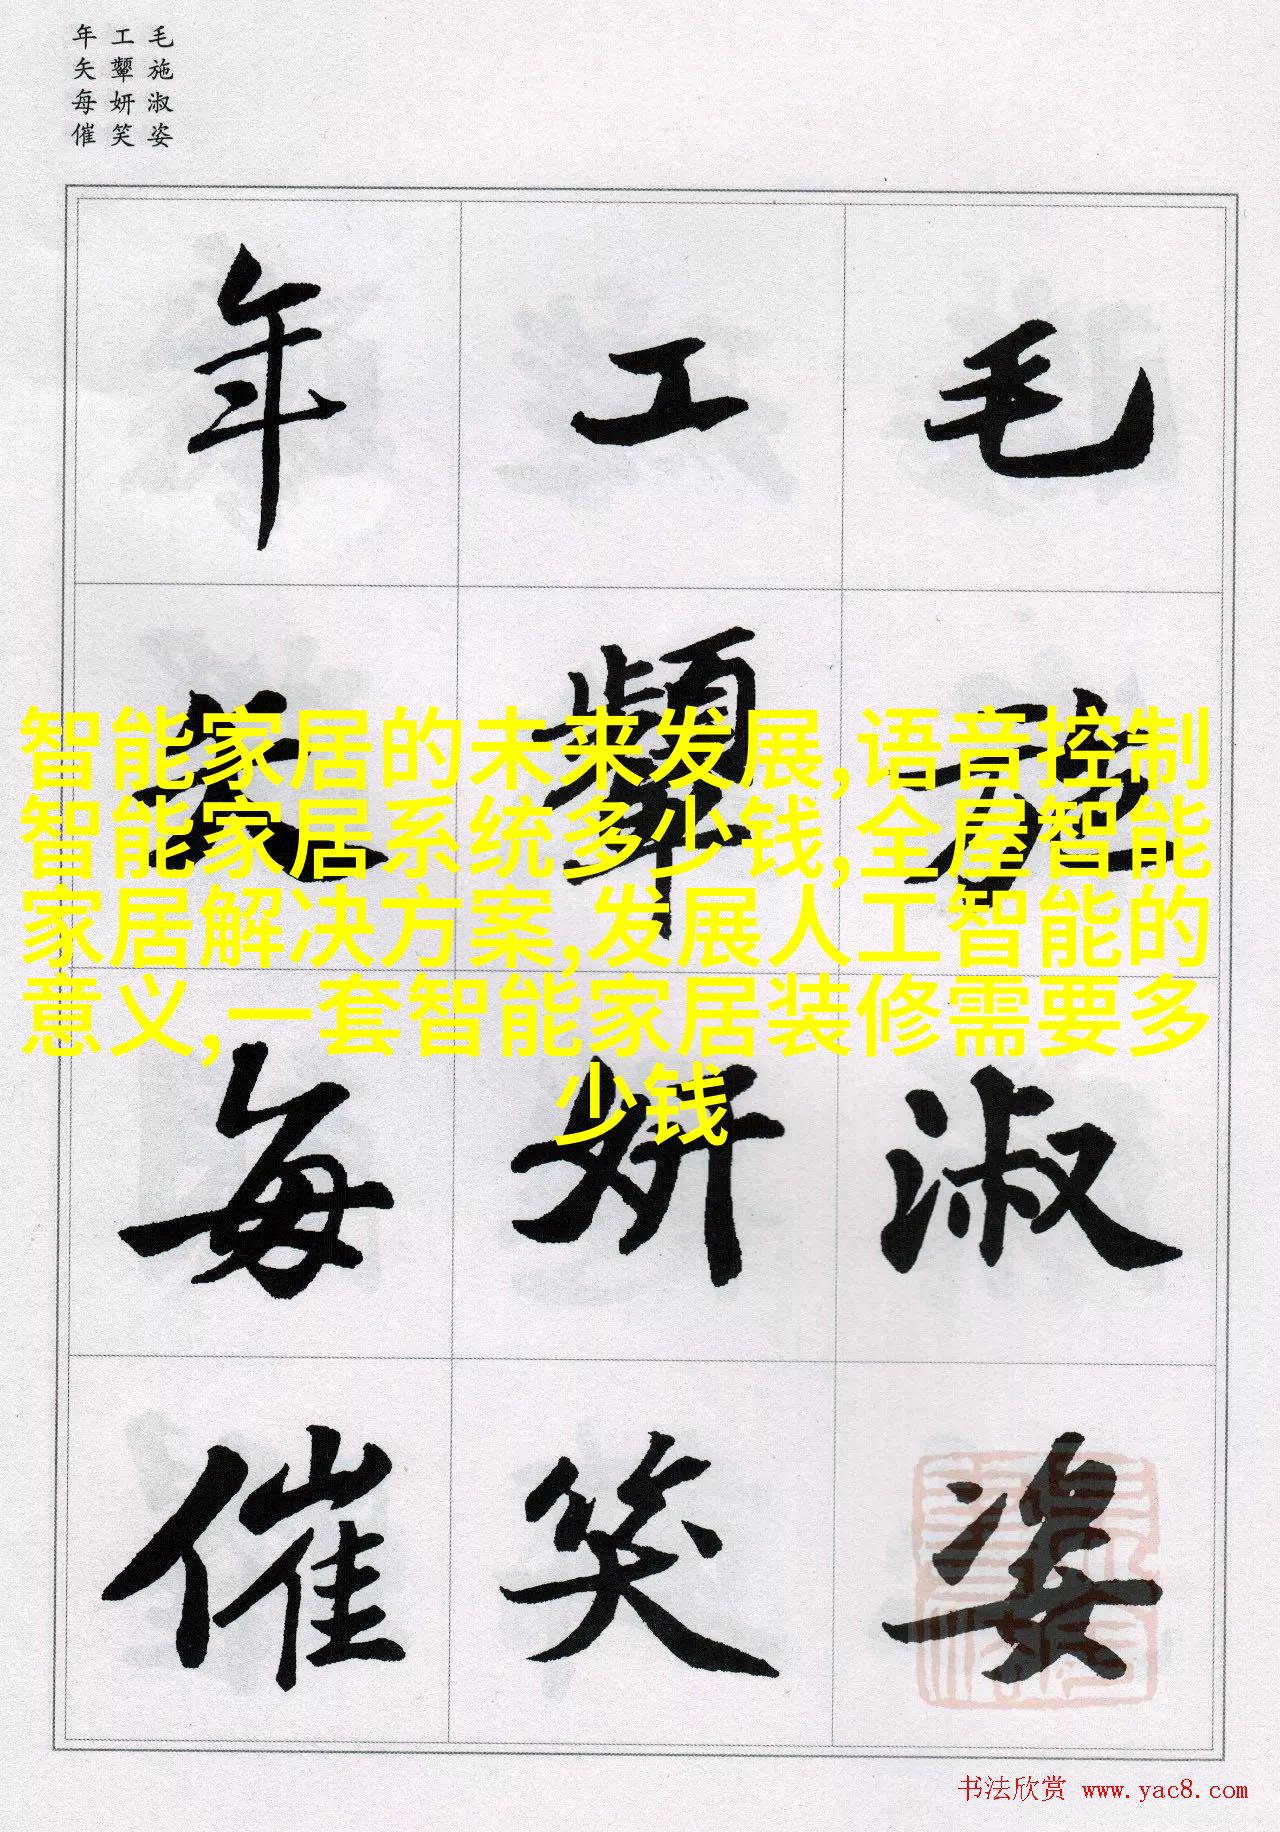 年 工 毛
矢 颦 施
每 妍 淑
催 笑 姿
年 工 毛
矢 颦 施
智能家居的未来发展,语音控制
智能家居系统多少钱,全屋智能
家居解决方案,发展人工智能的
意义,一套智能家居装修需要多
少钱
每 妍 淑
催 笑 姿
书法欣赏 www.yac8.com